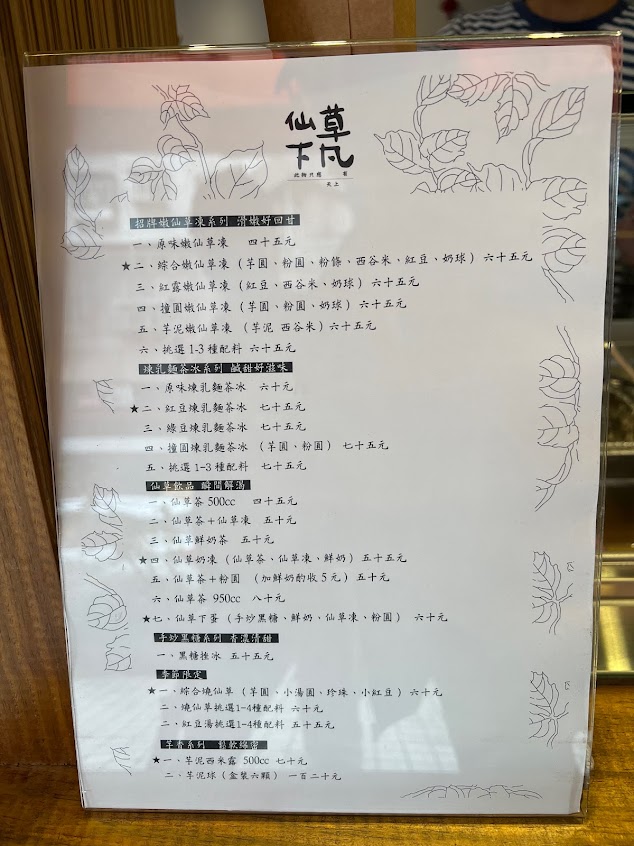 仙草
下凡
此物只應 有
天上
招牌嫩仙草凍系列 滑嫩好回甘
一、原味嫩仙草凍 四十五元
★二、綜合嫩仙草凍（芋圓、粉圓、粉條、西谷米、紅豆、奶球）六十五元
三、紅露嫩仙草凍（紅豆、西谷米、奶球）六十五元
四、撞圓嫩仙草凍（芋圓、粉圓、奶球）六十五元
五、芋泥嫩仙草凍（芋泥 西谷米）六十五元
六、挑選1-3種配料 六十五元
煉乳麵茶冰系列 鹹甜好滋味
一、原味煉乳麵茶冰 六十元
★二、紅豆煉乳麵茶冰 七十五元
三、綠豆煉乳麵茶冰 七十五元
四、撞圓煉乳麵茶冰（芋圓、粉圓）七十五元
五、挑選1-3種配料 七十五元
仙草飲品 瞬間解湯
一、仙草茶 500cc 四十五元
二、仙草茶+仙草凍 五十元
三、仙草鮮奶茶 五十元
★四、仙草奶凍（仙草茶、仙草凍、鮮奶）五十五元
五、仙草茶+粉圓 （加鮮奶酌收5元）五十元
六、仙草茶 950cc 八十元
★七、仙草下蛋（手炒黑糖、鮮奶、仙草凍、粉圓） 六十元
手炒黑糖系列 香濃清甜
一、黑糖挫冰 五十五元
季節限定
★一、綜合燒仙草（芋圓、小湯圓、珍珠、小紅豆）六十元
二、燒仙草挑選1-4種配料 六十元
二、紅豆湯挑選1-4種配料 五十五元
芋香系列 鬆軟綿密
★一、芋泥西米露 500cc 七十元
二、芋泥球（盒裝六顆） 一百二十元